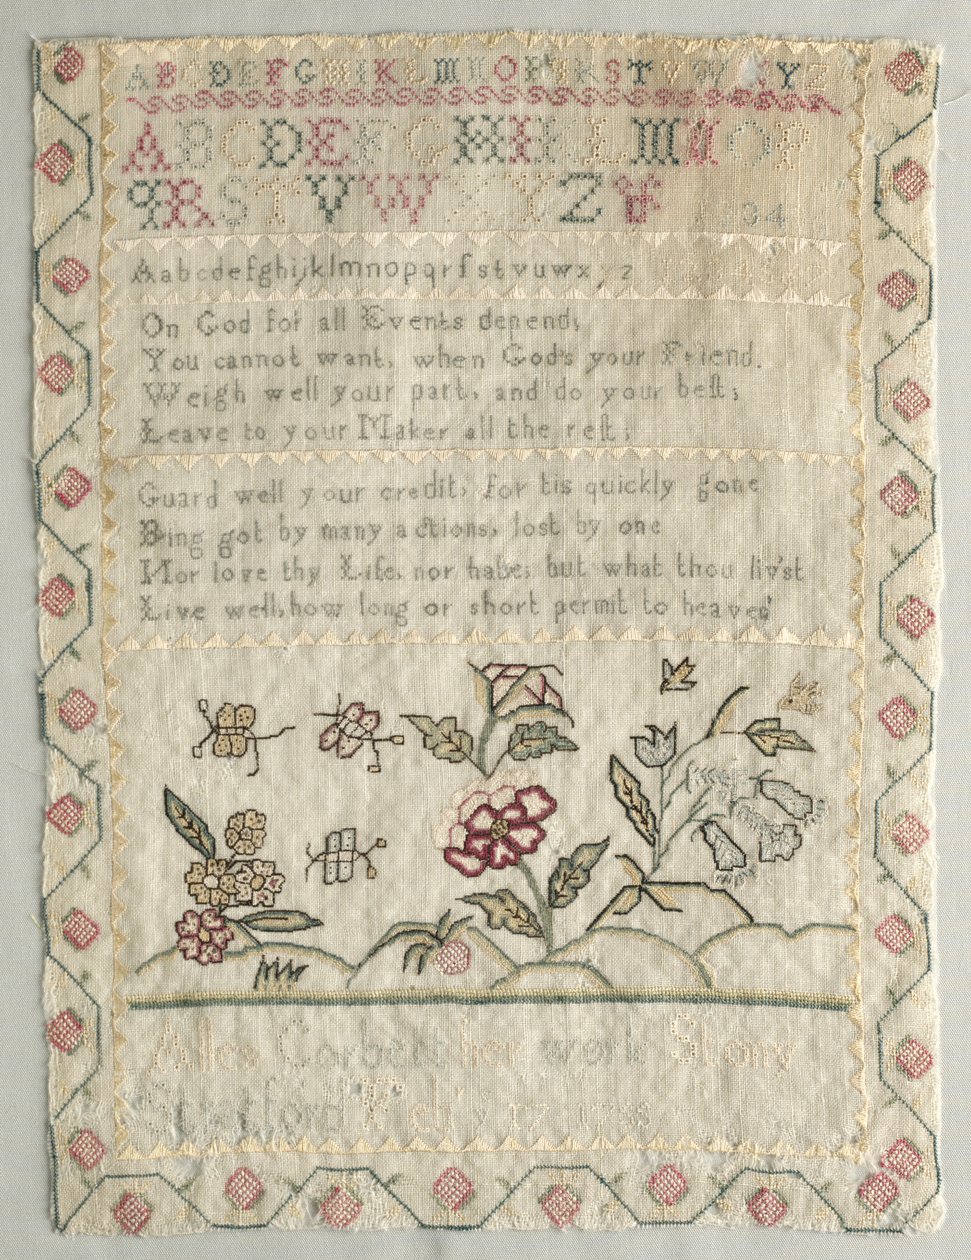 ABCDEFGHIKLMNOPQRSTVWXYZ
ABCDEFGHIKLMNOP
QRSTVWXYZ&
Aabcdefghijklmnopqrſstvuwxyz
On God for all Events depend;
You cannot want, when God's your Friend.
Weigh well your part, and do your beſt;
Leave to your Maker all the reſt;
Guard well your credit, for tis quickly gone
Bing got by many actions, lost by one
Nor love thy Life, nor hate, but what thou liv'st
Live well, how long or short permit to heaven
Alice her work Stony
Stratford 17